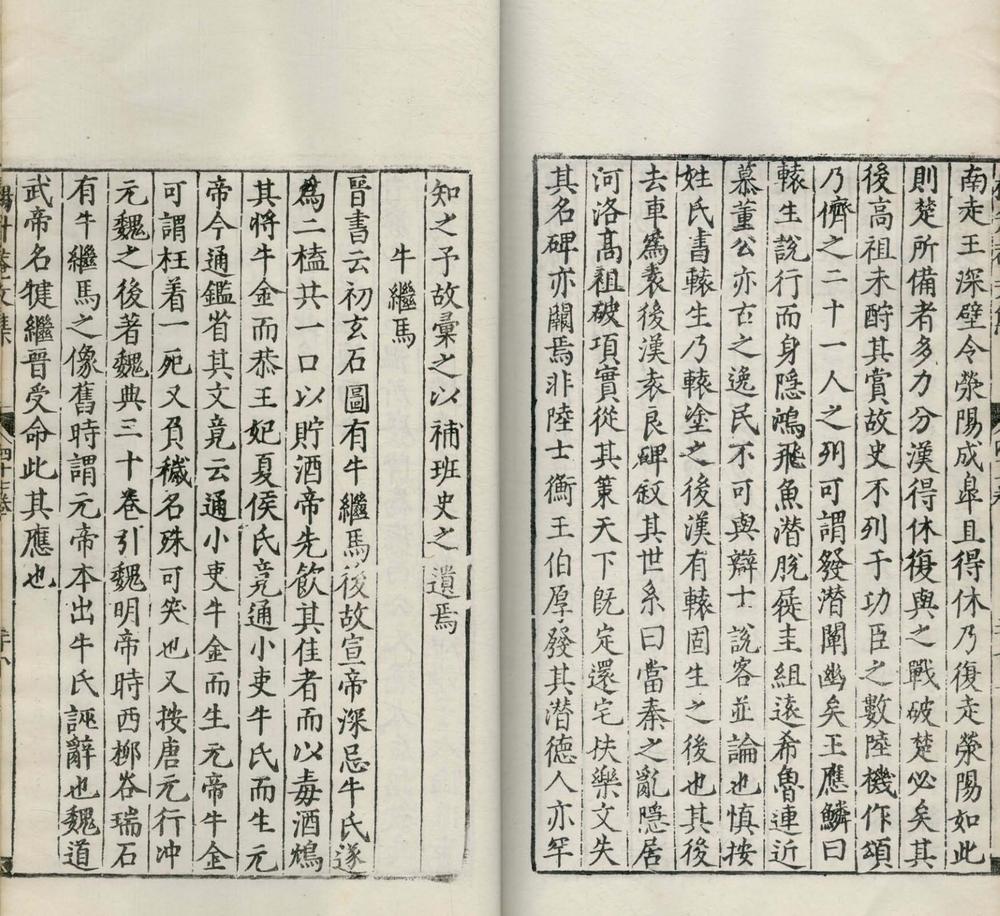 南走王深壁令滎陽成臯且得休乃復走滎陽如此
則楚所備者多力分漢得休復與之戰破楚必矣其
後高祖未酧其賞故史不列于功臣之數陸機作頌
乃儕之二十一人之列可謂發潜闡幽矣王應鱗曰
轅生說行而身隱鴻飛魚潜脫屣圭組遠希魯連近
慕董公亦古之逸民不可與辯士說客並論也慎按
姓氏書轅生乃轅塗之後漢有轅固生之後也其後
去車爲袁後漢袁良碑叙其世系曰當秦之亂隱居
河洛高祖破項實從其策天下旣定還宅扶樂文失
其名碑亦闕焉非陸士衡王伯厚發其潜德人亦罕
知之予故彙之以補班史之遺焉
牛繼馬
晉書云初玄石圖有牛繼馬後故宣帝深忌牛氏遂
爲二榼共一口以貯酒帝先飲其佳者而以毒酒鴆
其將牛金而恭王妃夏侯氏竟通小吏牛氏而生元
帝今通鑑省其文竟云通小吏牛金而生元帝牛金
可謂枉着一死又負穢名殊可笑也又按唐元行冲
元魏之後著魏典三十卷引魏明帝時西柳谷瑞石
有牛繼馬之像舊時謂元帝本出牛氏誣辭也魏道
武帝名犍繼晉受命此其應也